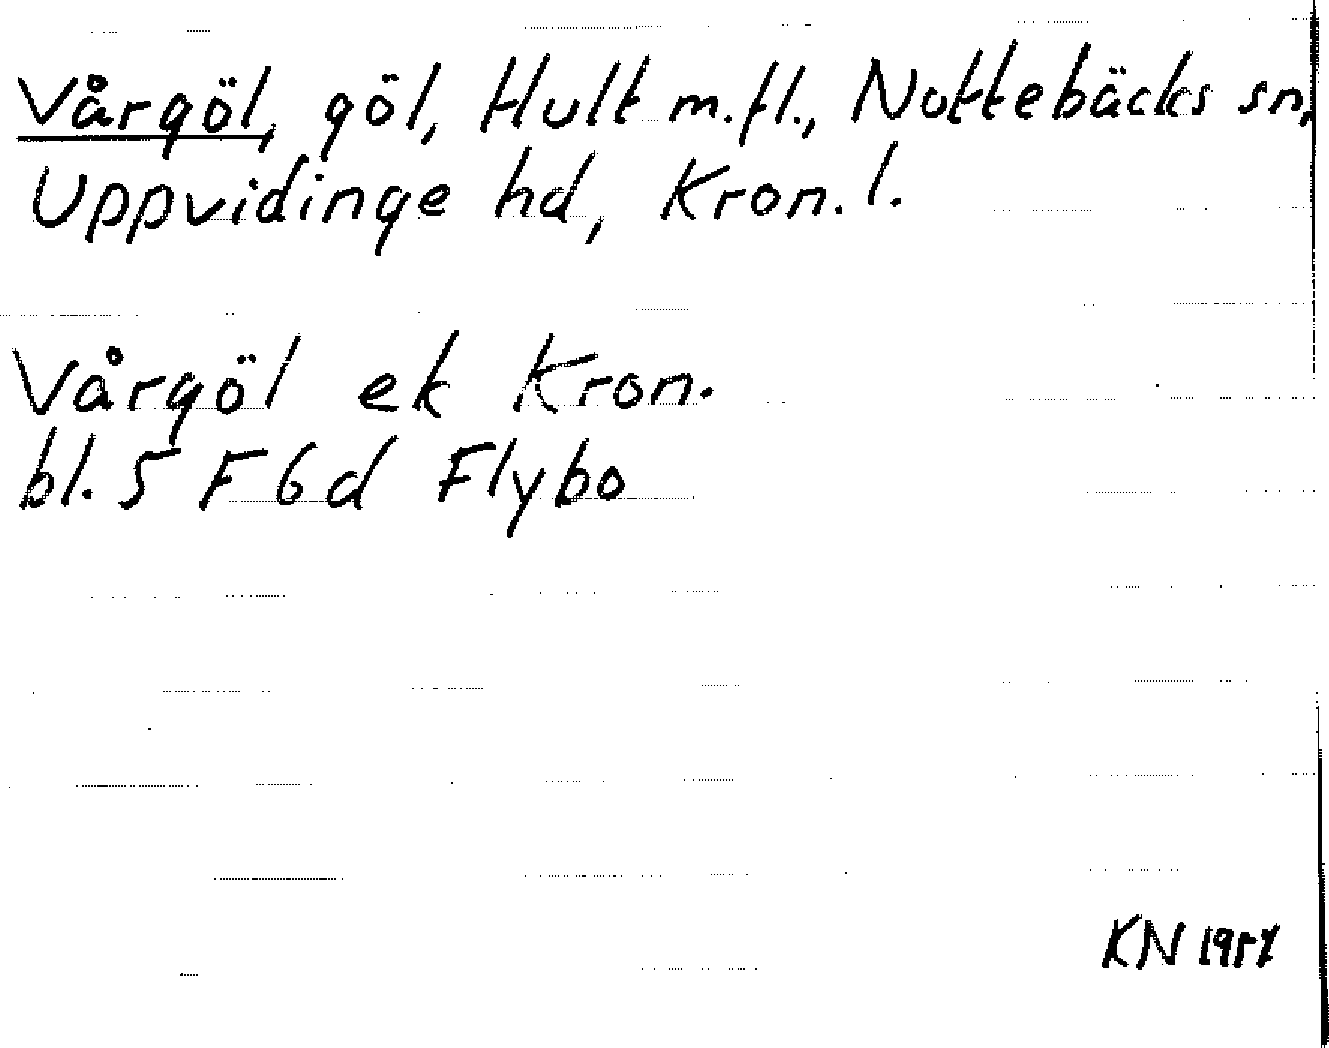 Vårgöl, göl, Hult m.fl., Nottebäcks sn,
Uppvidinge hd, Kron. l.
Vårgöl ek Kron.
bl. 5 F 6 d Flybo
KN 1957